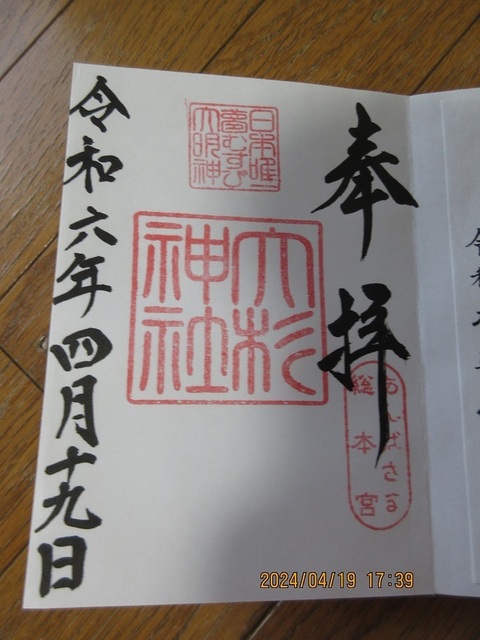 奉拝
あんばさま
総本宮
日本唯一
夢むすび
大明神
大杉
神社
令和六年四月十九日
2024/04/19 17:39